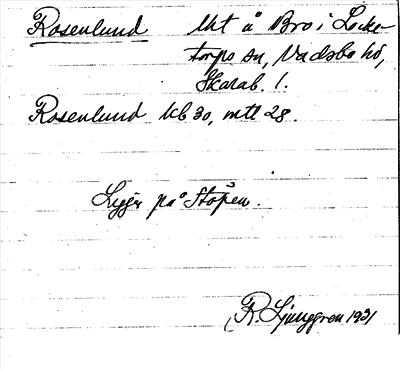 Rosenlund Uht å Bro i Locke-
torps sn, Vadsbo hd,
Skarab. l.
Rosenlund kb 30, mtl 28.
Ligger på Stöpen.
R. Ljunggren 1931